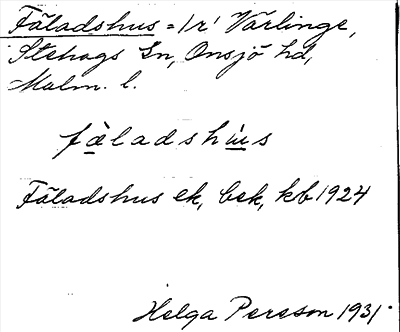 Fäladshus = 1/r' Värlinge,
Stehags Sn, Onsjö hd,
Malm. l.
fàladshu̇s
Fäladshus ek, bek, kb 1924
Helga Persson 1931